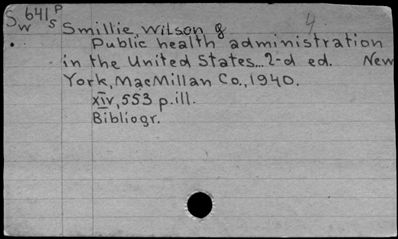 S 641 P
w s Smillie, Wilson G 4.
Public health administration
in the United States... 2-d ed. New
York, MacMillan Co., 1940.
xiv, 553 p. ill.
Bibliogr.